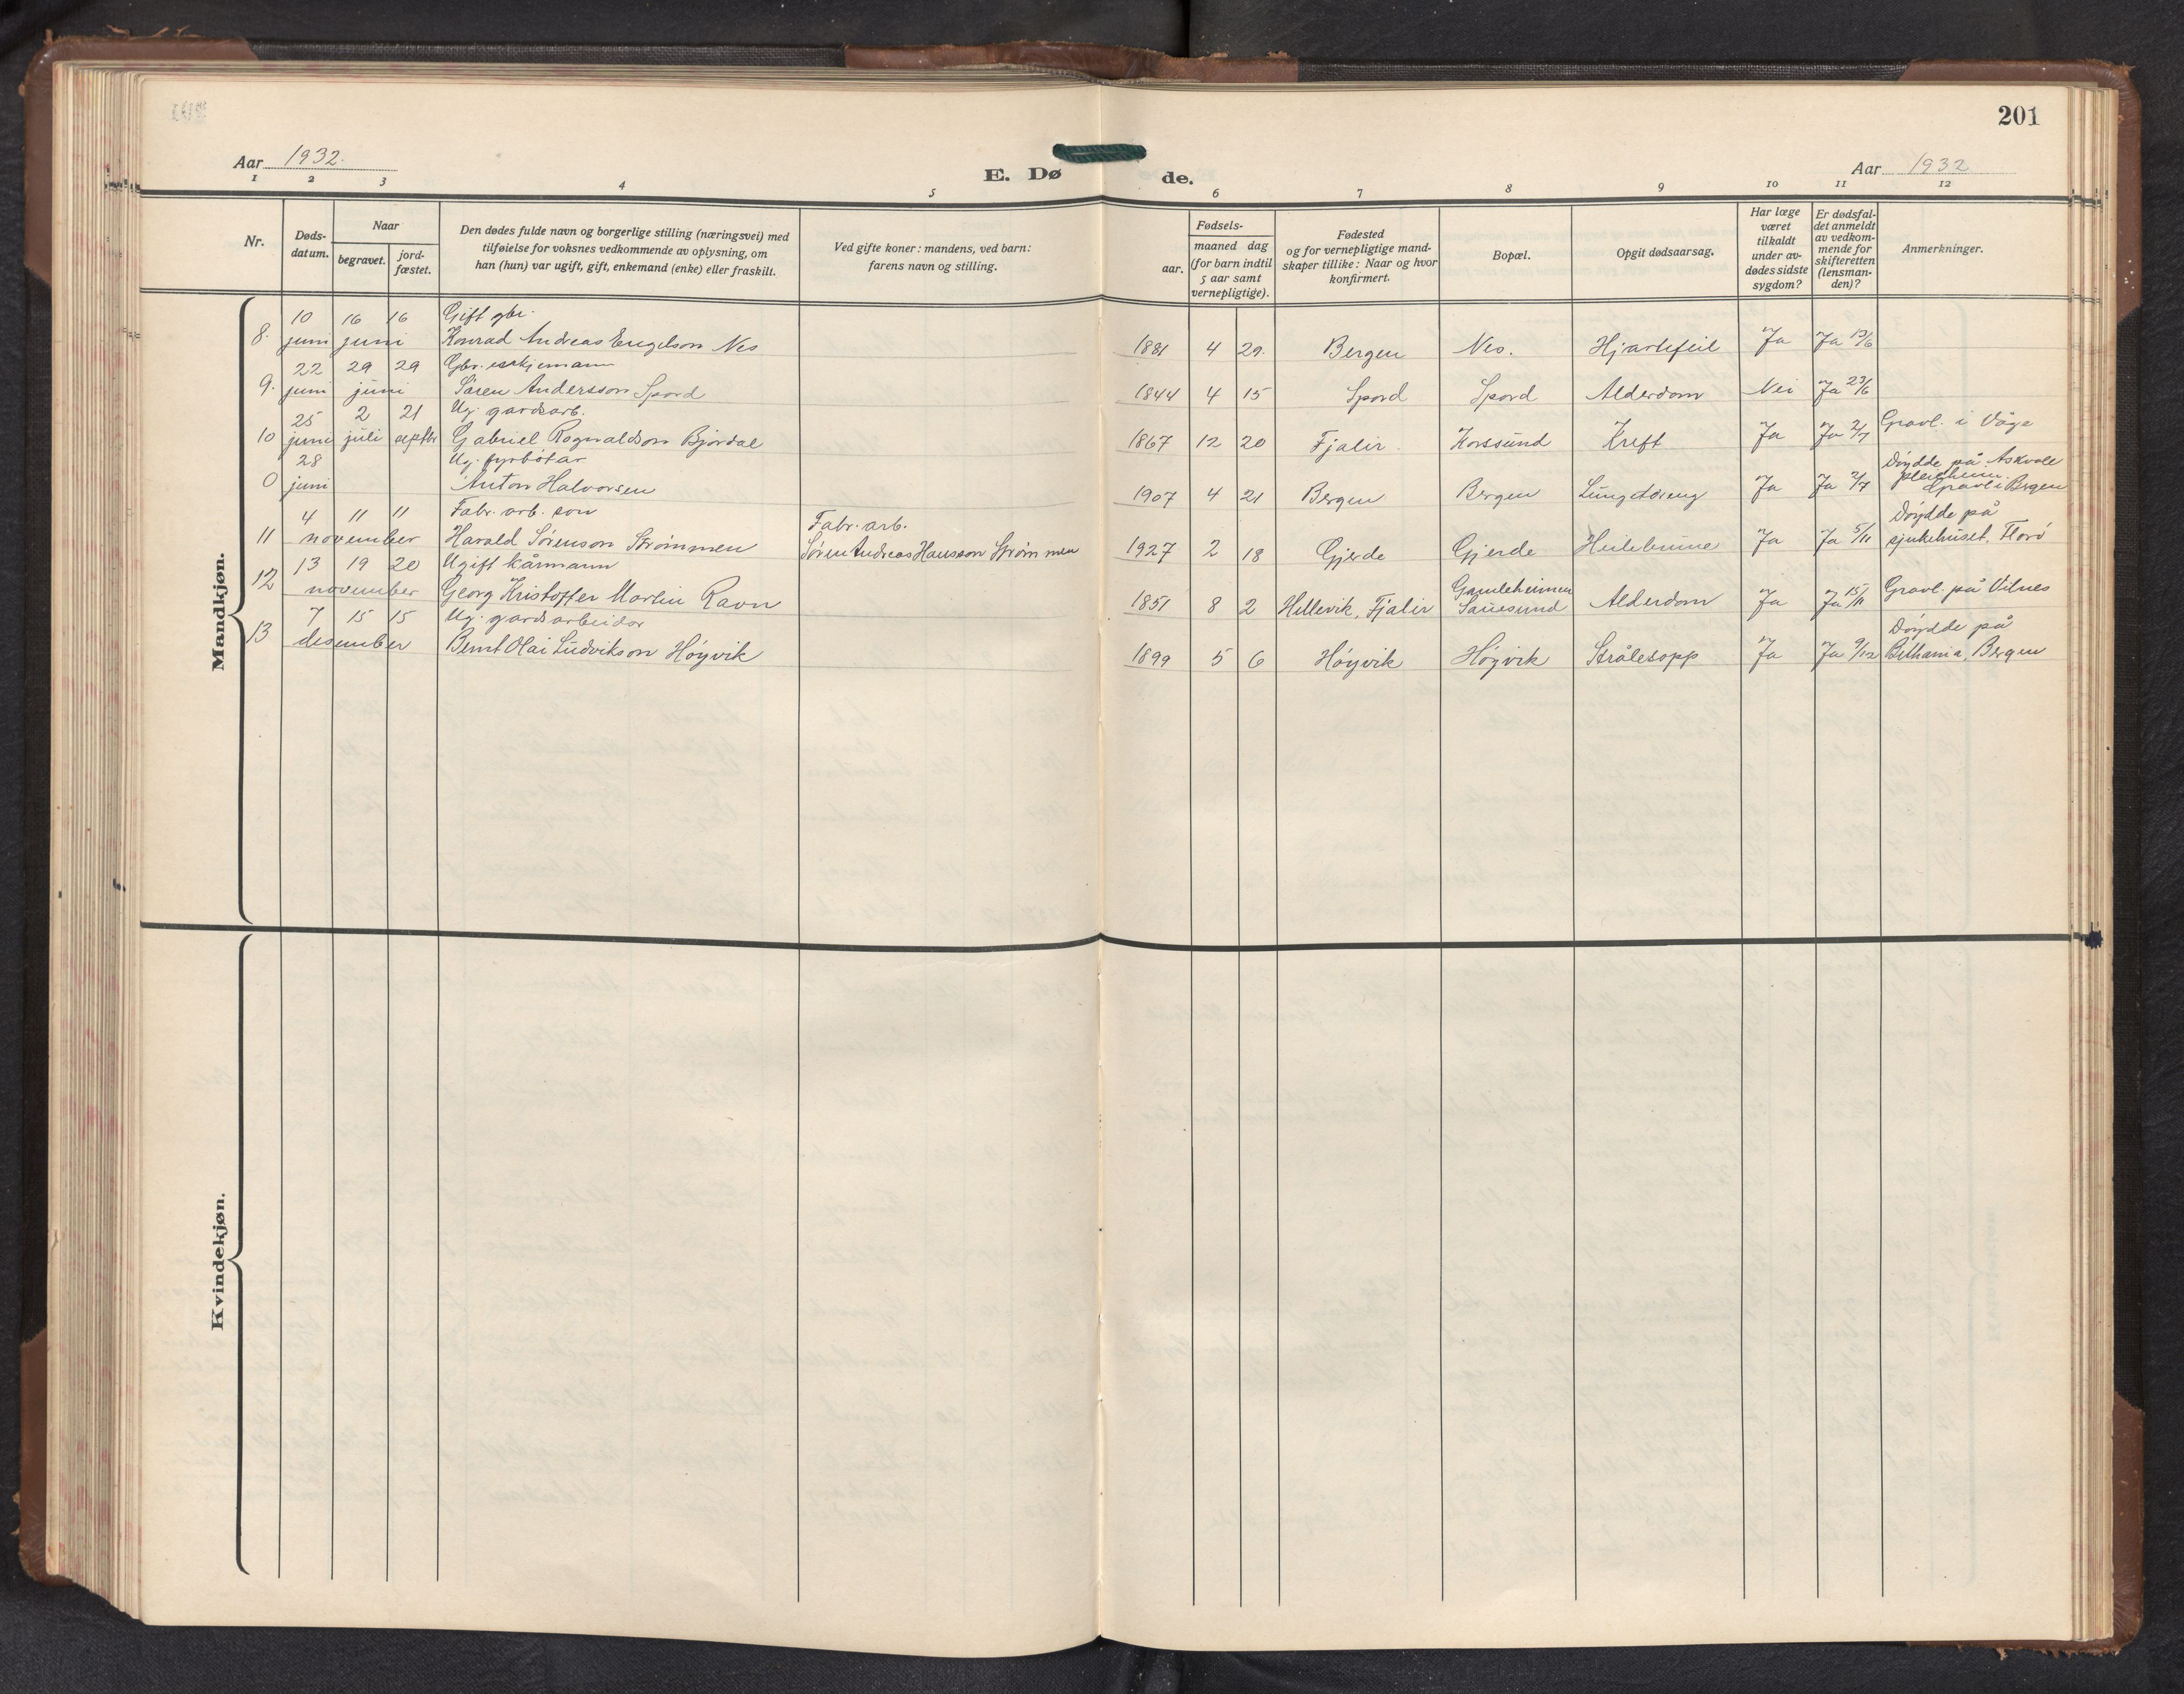 201
Aar 1932.
E. Døde.
Aar 1932
1 2 3 4 5 6 7 8 9 10 11 12
Nr.
Døds-
datum.
Naar
begravet.
jord-
fæstet.
Den dødes fulde navn og borgerlige stilling (næringsvei) med
tilføielse for voksnes vedkommende av oplysning, om
han (hun) var ugift, gift, enkemand (enke) eller fraskilt.
Ved gifte koner: mandens, ved barn:
farens navn og stilling.
Fødsels-
aar.
maaned dag
(for barn indtil
5 aar samt
vernepligtige).
Fødested
og for vernepligtige mand-
skaper tillike: Naar og hvor
konfirmert.
Bopæl.
Opgit dødsaarsag.
Har læge
været
tilkaldt
under av-
dødes sidste
sygdom?
Er dødsfal-
det anmeldt
av vedkom-
mende for
skifteretten
(lensman-
den)?
Anmerkninger.
Mandkjøn.
10 16 16 Gift gbr.
8. juni juni Konrad Andreas Engelson Nes 1881 4 29. Bergen Nes. Hjartefeil Ja Ja 13/6
22 29 29 Gbr. enkjemann
9. juni juni Søren Andersson Spord 1844 4 15 Spord Spord Alderdom Nei Ja 23/6
25 2 21 Ug. gardsarb.
10 juni juli septbr Gabriel Rognaldson Bjordal 1867 12 20 Fjalir Korssund Kreft Ja Ja 2/7 Gravl. i Våge
28 Ug. fyrbøtar
0 juni Anton Halvorsen 1907 4 21 Bergen Bergen Ja Ja 2/7 Døydde på Askvoll
pleieheim.
Gravl i Bergen
4 11 11 Fabr. arb. son Fabr. arb.
11 november Harald Sørenson Strømmen Søren Andreas Hansson Strømmen 1927 2 18 Gjerde Gjerde Heilebrune Ja Ja 5/11 Døydde på
sjukehuset, Florø
13 19 20 Ugift kårmann
12 november Georg Kristoffer Martin Ravn 1851 8 2 Hellevik, Fjalir Gamleheimen
Sauesund Alderdom Ja Ja 15/11 Gravl. på Vilnes
7 15 15 Ug. gardsarbeidar
13 desember Bernt Olai Ludvikson Høyvik 1899 5 6 Høyvik Høyvik Strålesopp Ja Ja 9/12 Døydde på
Bethania, Bergen
Kvindekjøn.